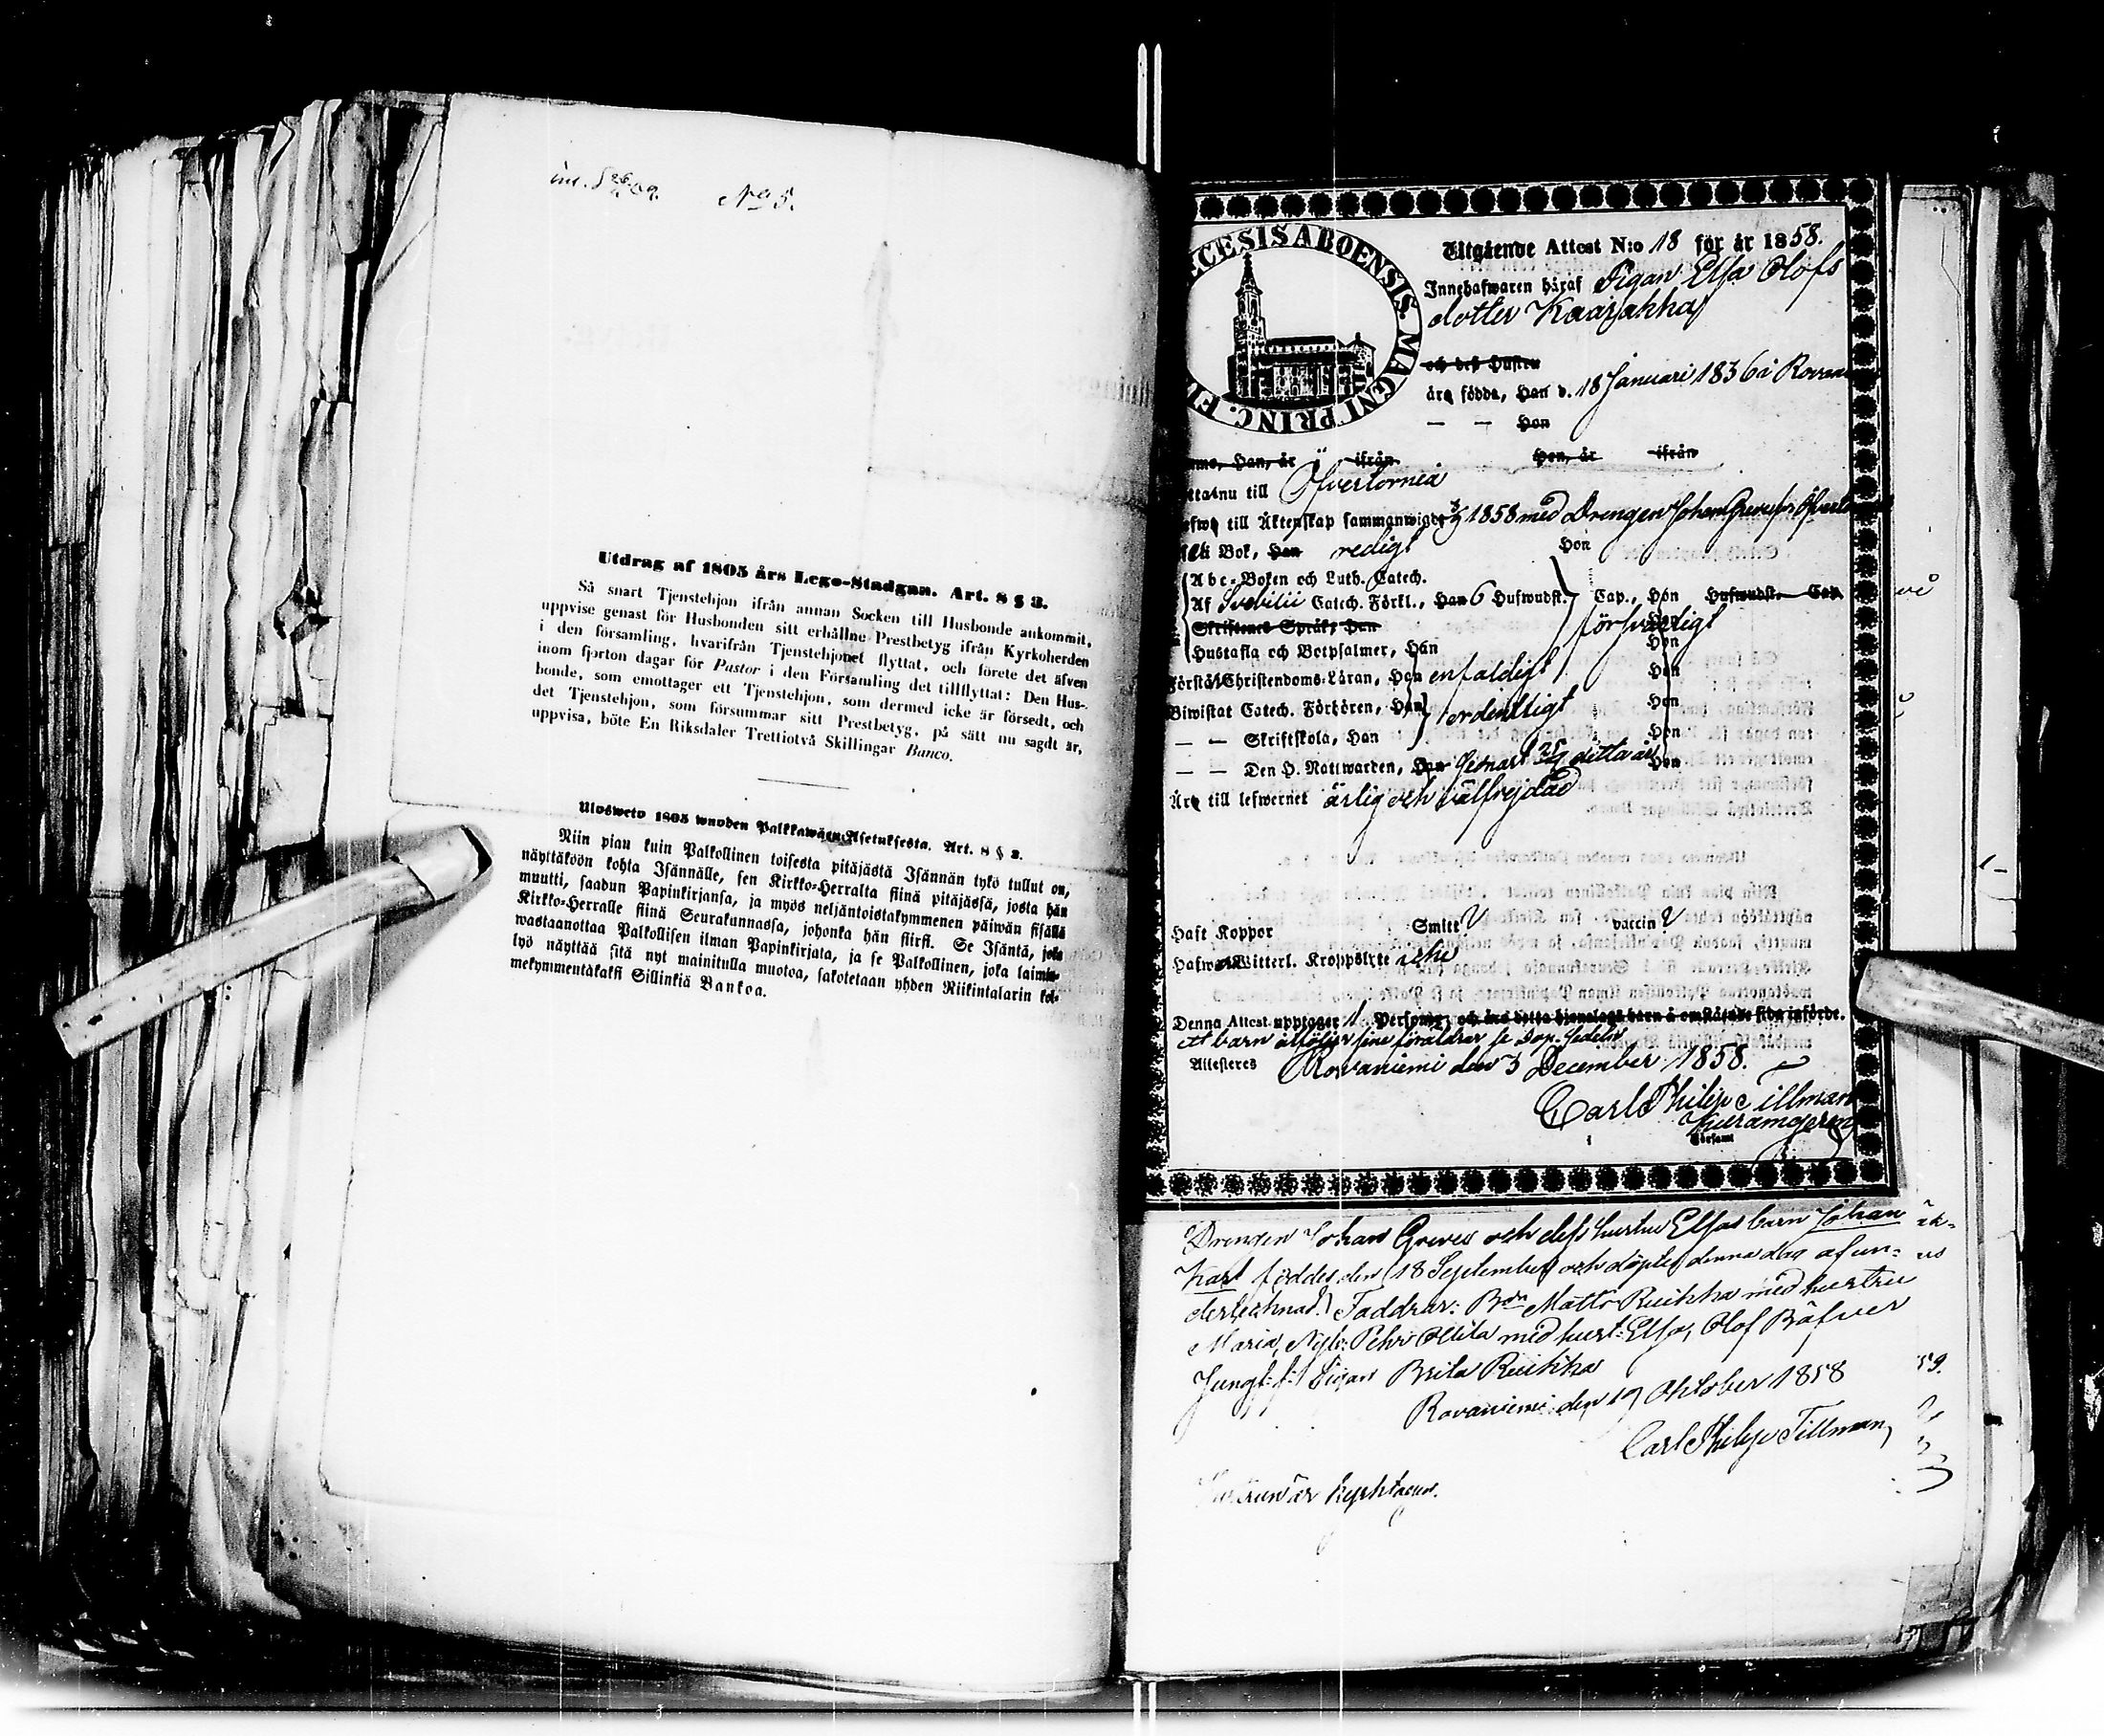 No 5.
Utdrag af 1805 års Lego-Stadgan. Art. 8 § 3.
Så snart Tjenstehjon ifrån annan Socken till Husbonde ankommit,
uppvise genast för Husbonden sitt erhållne Prestbetyg ifrån Kyrkoherden
i den församling, hvarifrån Tjenstehjonet flyttat, och förete det äfven
inom fjorton dagar för Pastor i den Församling det tillflyttat: Den Hus-
bonde, som emottager ett Tjenstehjon, som dermed icke är försedt, och
det Tjenstehjon, som försummar sitt Prestbetyg, på sätt nu sagdt är,
uppvisa, böte En Riksdaler Trettiotvå Skillingar Banco.
Ulosweto 1805 wuoden Palkkawäen Asetuksesta. Art. 8 § 3.
Niin pian kuin Palkollinen toisesta pitäjästä Isännän tykö tullut on,
näyttäköön kohta Isännälle, sen Kirkko-Herralta siinä pitäjässä, josta hän
muutti, saadun Papinkirjansa, ja myös neljäntoistakymmenen päiwän sisällä
Kirkko-Herralle siinä Seurakunnassa, johonka hän siirsi. Se Isäntä, joka
wastaanottaa Palkollisen ilman Papinkirjata, ja se Palkollinen, joka laimin-
lyö näyttää sitä nyt mainitulla muotoa, sakotetaan yhden Riikintalarin kol-
mekymmentäkaksi Sillinkiä Bankoa.
ECESIS ABOENSIS. MAGNI PRINC. FI
Utgående Attest N:o 18 för år 1858.
Innehafwaren häraf Pigan Elsa Olofs
dotter Kaarakka
och deß Hustru
äro födda, Han d. 18 Januari 1836 i Rovan
— — Hon
Han, är ifrån Hon, är ifrån
nu till Öfvertorneå
till Äktenskap sammanwigde 1858 med Drengen Johan
Bok, Han redigt Hon
Abc-Boken och Luth. Catech.
Af Svebilii Catech. Förkl., Han 6 Hufwudst. Cap., Hon Hufwudst. Cap.
Skriftenes Språk, Han försvarligt Hon
Hustafla och Botpsalmer, Hän Hon
Förstå Christendoms-Läran, Han enfaldigt Hon
Biwistat Catech. Förhören, Han ordentligt Hon
— — Skriftskola, Han Hon
— — Den H. Nattwarden, Han senast ditta år Hon
Äro till lefwernet ärlig och välfrejdad
Haft Koppor Smitt V vaccin V
Hafwa Witterl. Kroppslyte icke
Denna Attest upptager 1 Person, och äro detta hjonelags barn å omstående sida införde.
et barn åtföljer sine föräldrar se Dop-sedeln
Attesteras Rovaniemi den 3 December 1858.
Carl Philip Tillman
Drengen Johan Greves och dess hustru Elsas barn Johan
Karl föddes den 18 September och döptes denna dag af un-
dertecknad. Faddrar: Bdn Matts Ruikka med hustru
Maria, Nyb: Pehr Ollila med hust: Elsa, Olof Båfver
Jungf: f: Pigan Brita Ruikka
Rovaniemi den 19 Oktober 1858
Carl Philip Tillman
Hustrun är kyrktagen.